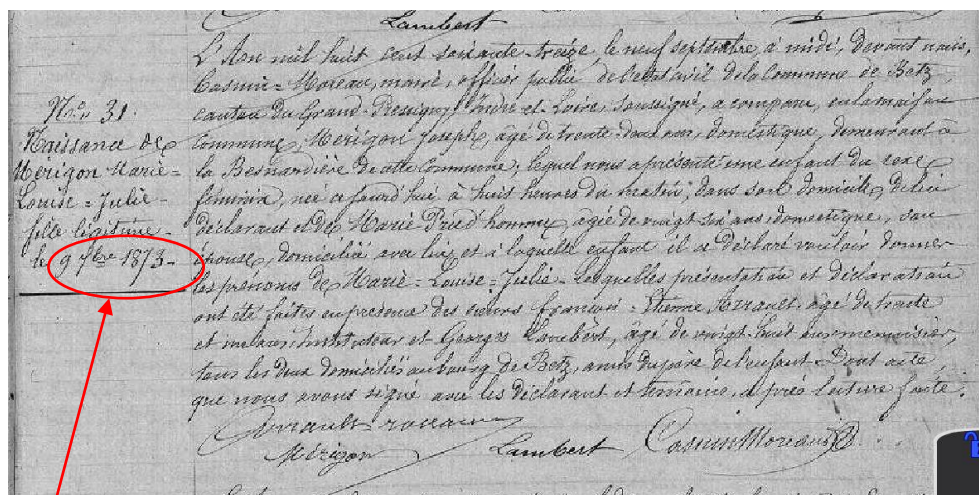 Lambert
L'An mil huit cent soixante-treize, le neuf septembre, à midi, devant nous,
Casimir = Moreau, maire, officier public de l'état civil de la Commune de Betz
canton du Grand-Pressigny, Indre et Loire, soussigné, a comparu, en la maison
commune, Mérigon Joseph, âgé de trente-deux ans, domestique, demeurant à
la Besnardière de cette Commune, lequel nous a présenté une enfant du sexe
féminin, née aujourd'hui à huit heures du matin, dans son domicile, de lui
déclarant et de Marie Prud'homme, agée de vingt six ans, domestique, son
épouse, domiciliée avec lui, et à laquelle enfant il a déclaré vouloir donner
les prénoms de Marie = Louise = Julie - lesquelles présentation et déclaration
ont été faites en présence des sieurs françois = Etienne agé de trente
et un ans, Instituteur et Georges Lambert, âgé de vingt-huit ans, menuisier,
tous les deux domiciliés au bourg de Betz, amis du père de l'enfant - Dont acte
que nous avons signé avec les déclarant et témoins, après lecture faite.
N° 31.
Naissance de
Mérigon Marie =
Louise = Julie -
fille légitime -
le 9 7bre 1873 -
Mérigon
Lambert
Casimir Moreau